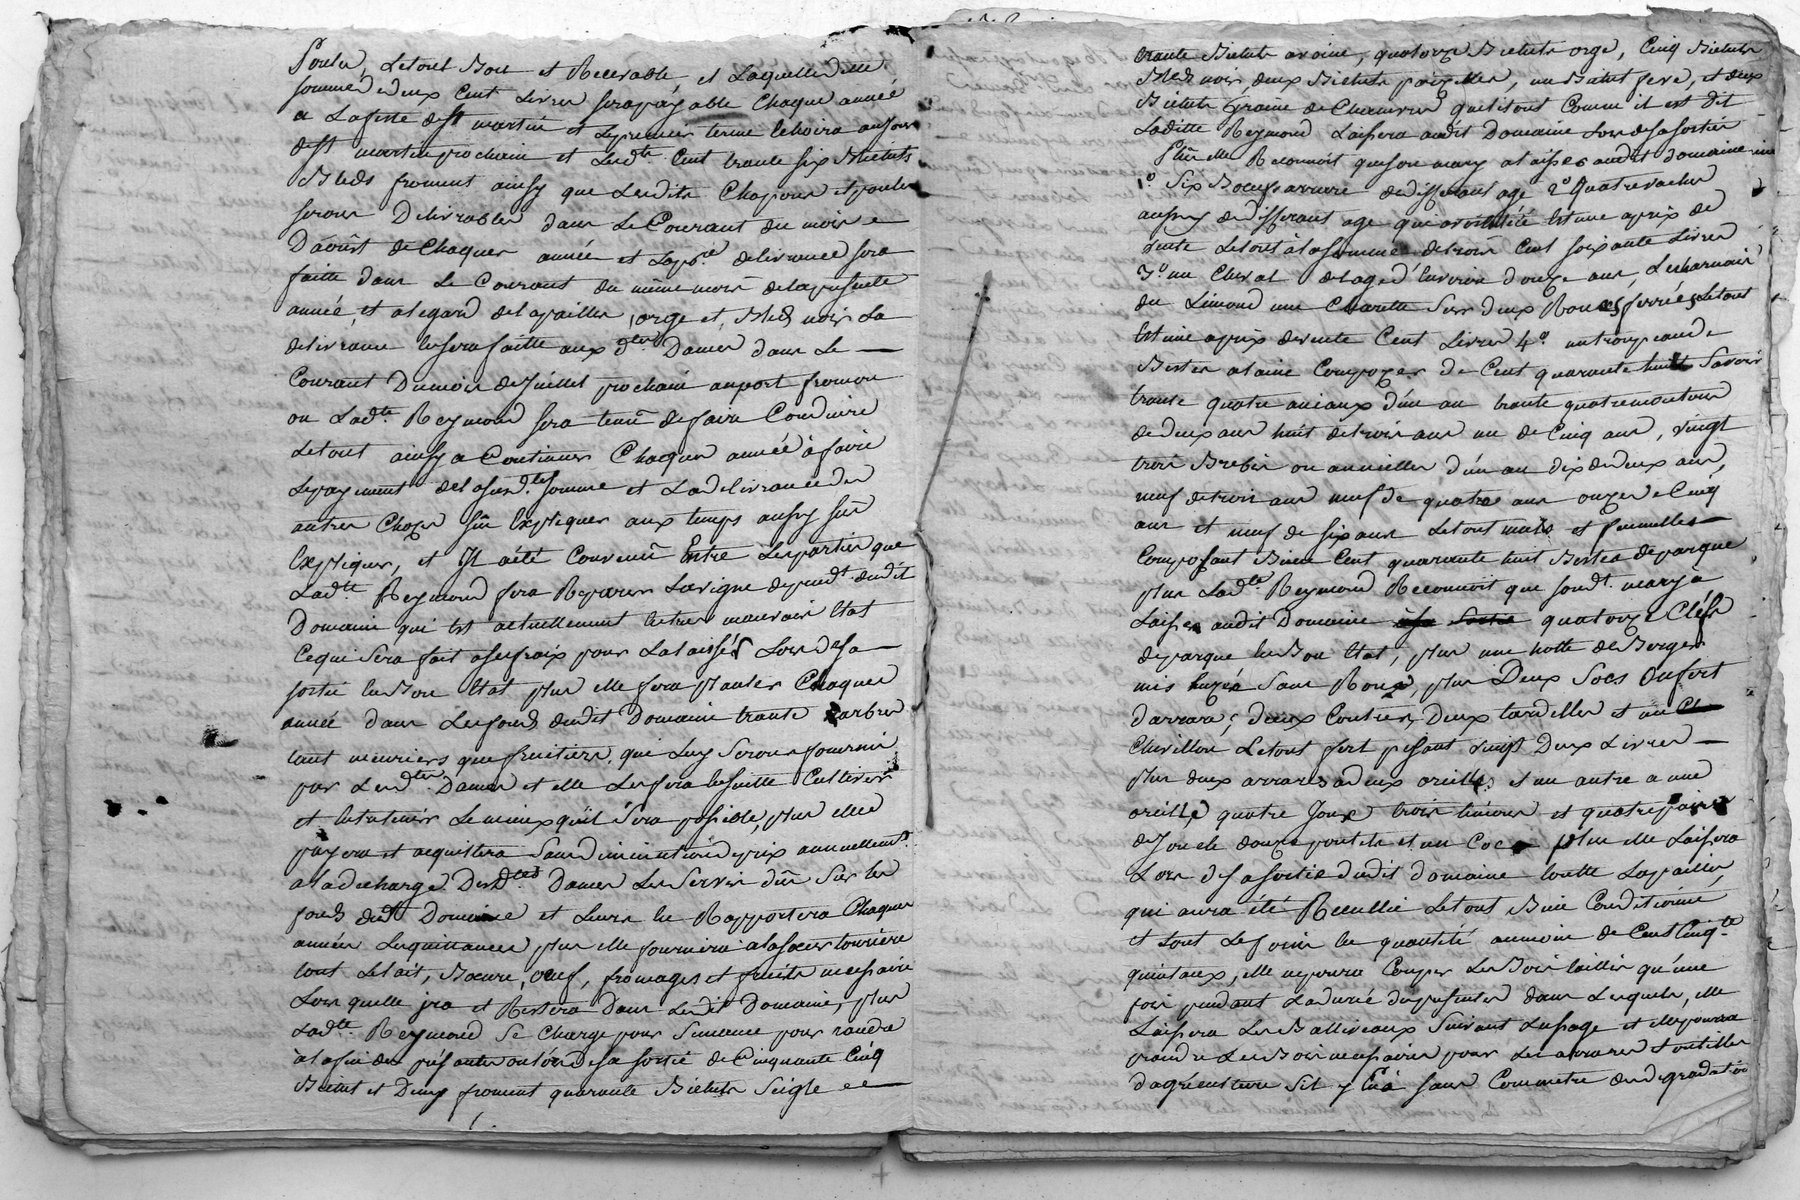 Poule, Letout Bon et Recevable, et Laquelle ditte
somme de deux Cent Livres serapayable Chaque année
a Lafeste de st martin et Lepremier terme Echoira aujour
de st martin prochain et Lesdts. Cent trante six Bichets
Bleds froment ainsy que Lesdits Chapons et poules
seront Delivrables dans Le Courant du mois
Daoust de Chaques année et Lapre. delivrance sera
faitte dans Le Courant du même mois delapresente
année, et alegard delapaille, orge et, Bled noir La
delivrance ensera faitte aux dtes. Dames dans Le
Courant Dumois de Juillet prochain auport fromon
ou Ladte. Reymond sera tenue defaire Conduire
Letout ainsy a Continuer Chaques année à faire
Lepayement delasusdte. somme et Ladelivrance des
autres Choses sus Expliquer aux temps aussy sus
Expliquer, et Il aété Convenu Entre Lesparties que
Ladte. Reymond fera Reparer Lavigne dependt. dudit
Domaine qui Est actuellement entres mauvais Etat
Cequi sera fait asesfraix pour Lalaisser Lors desa
sortie en Bon Etat plus elle fera planter Chaques
année dans Lesfonds dudit Domaine trante arbres
tant meuriers quefruitiers, qui Luy seront fournis
par Lesdtes. Dames et elle Les fera ensuitte Cultiver
et Entretenir Le mieux qu'il sera possible, plus elle
payera et acquittera sans diminution duprix annuellemt.
aladecharge Desdtes. Dames Les Servis dûs sur les
fonds dudt Domaine et Leurs En Rapportera Chaques
années Lesquittances plus elle fournira alasoeur tourriere
tout Lelait, Boeure, oeuf, fromages et fruits necessaire
Lors quelle ira et Restera Dans Ledit Domaine, plus
Ladte. Reymond se Charge pour Semence pour randre
àlafin des présentes oulors desa sortie de Cinquante Cinq
Bichet et Demy froment quarante Bichets Seigle
trante Bichets avoine, quatorze Bichets orge, Cinq Bichets
Bled noir, deux Bichets, un Bichet feve, et deux
Bichets Graine de Chanvres quetitout Comme il est dit
Laditte Reymond Laissera audit Domaine Lors desasortie
Plus elle Reconnoit queson mary a laisser audit domaine
1o. Six Boeufs arriere dedifferant age 2o. Quatre vaches
aussy dedifferant age Estime aprix de
vente Letout àlasomme detrois Cent soixante Livres
3o. un Cheval delaged'Environ douze ans, Lesharnais
du Limond une Charette Sur deux Roues ferrées Letout
Estime aprix devente Cent Livres 4o. untroupeau de
Bestes alaine Composer de Cent quarante huit Savoir
trante quatre aniaux d'un an trante quatremoutons
dedeux ans huit detrois ans un de Cinq ans, vingt
trois Brebis ou anielles d'un an dix dedeux ans,
neuf detrois ans neuf de quatre ans onze de Cinq
ans et neuf de six ans Letout males et femelles
Composant Bien Cent quarante huit Bestes deparque
plus Ladte. Reymond Reconnoit que sondt. mary à
Laisser audit Domaine quatorze Clefs
deparque en Bon Etat, plus une hotte de Berger
mis huzée Sans Roues, plus Deux Socs Enfert
d'arrara, deux Coutres, Deux tardelles et un
Chevillon Letout fert pesant vingt Deux Livres
plus deux arrares adeux oreilles et un autre a une
oreille, quatre Joux trois timons et quatrepaires
deJoucle douze pontets et un Coc plus elle Laissera
Lors desasortie dudit domaine toutte Lapaille,
qui aura été Recullie Letout Bien Conditionné
et tout Le foin en quantité aumoins de Cent Cinqte.
quintaux, elle nepourra Couper Les Bois taillis qu'une
fois pendant Ladurée depresentes dans Lesquels, elle
Laissera Les Balliveaux Suivant Lusage et ellepourra
prendre Les Bois necessaires pour Les arrares & outilles
d'agriculture Sil y En à sans Commetre dedegradation